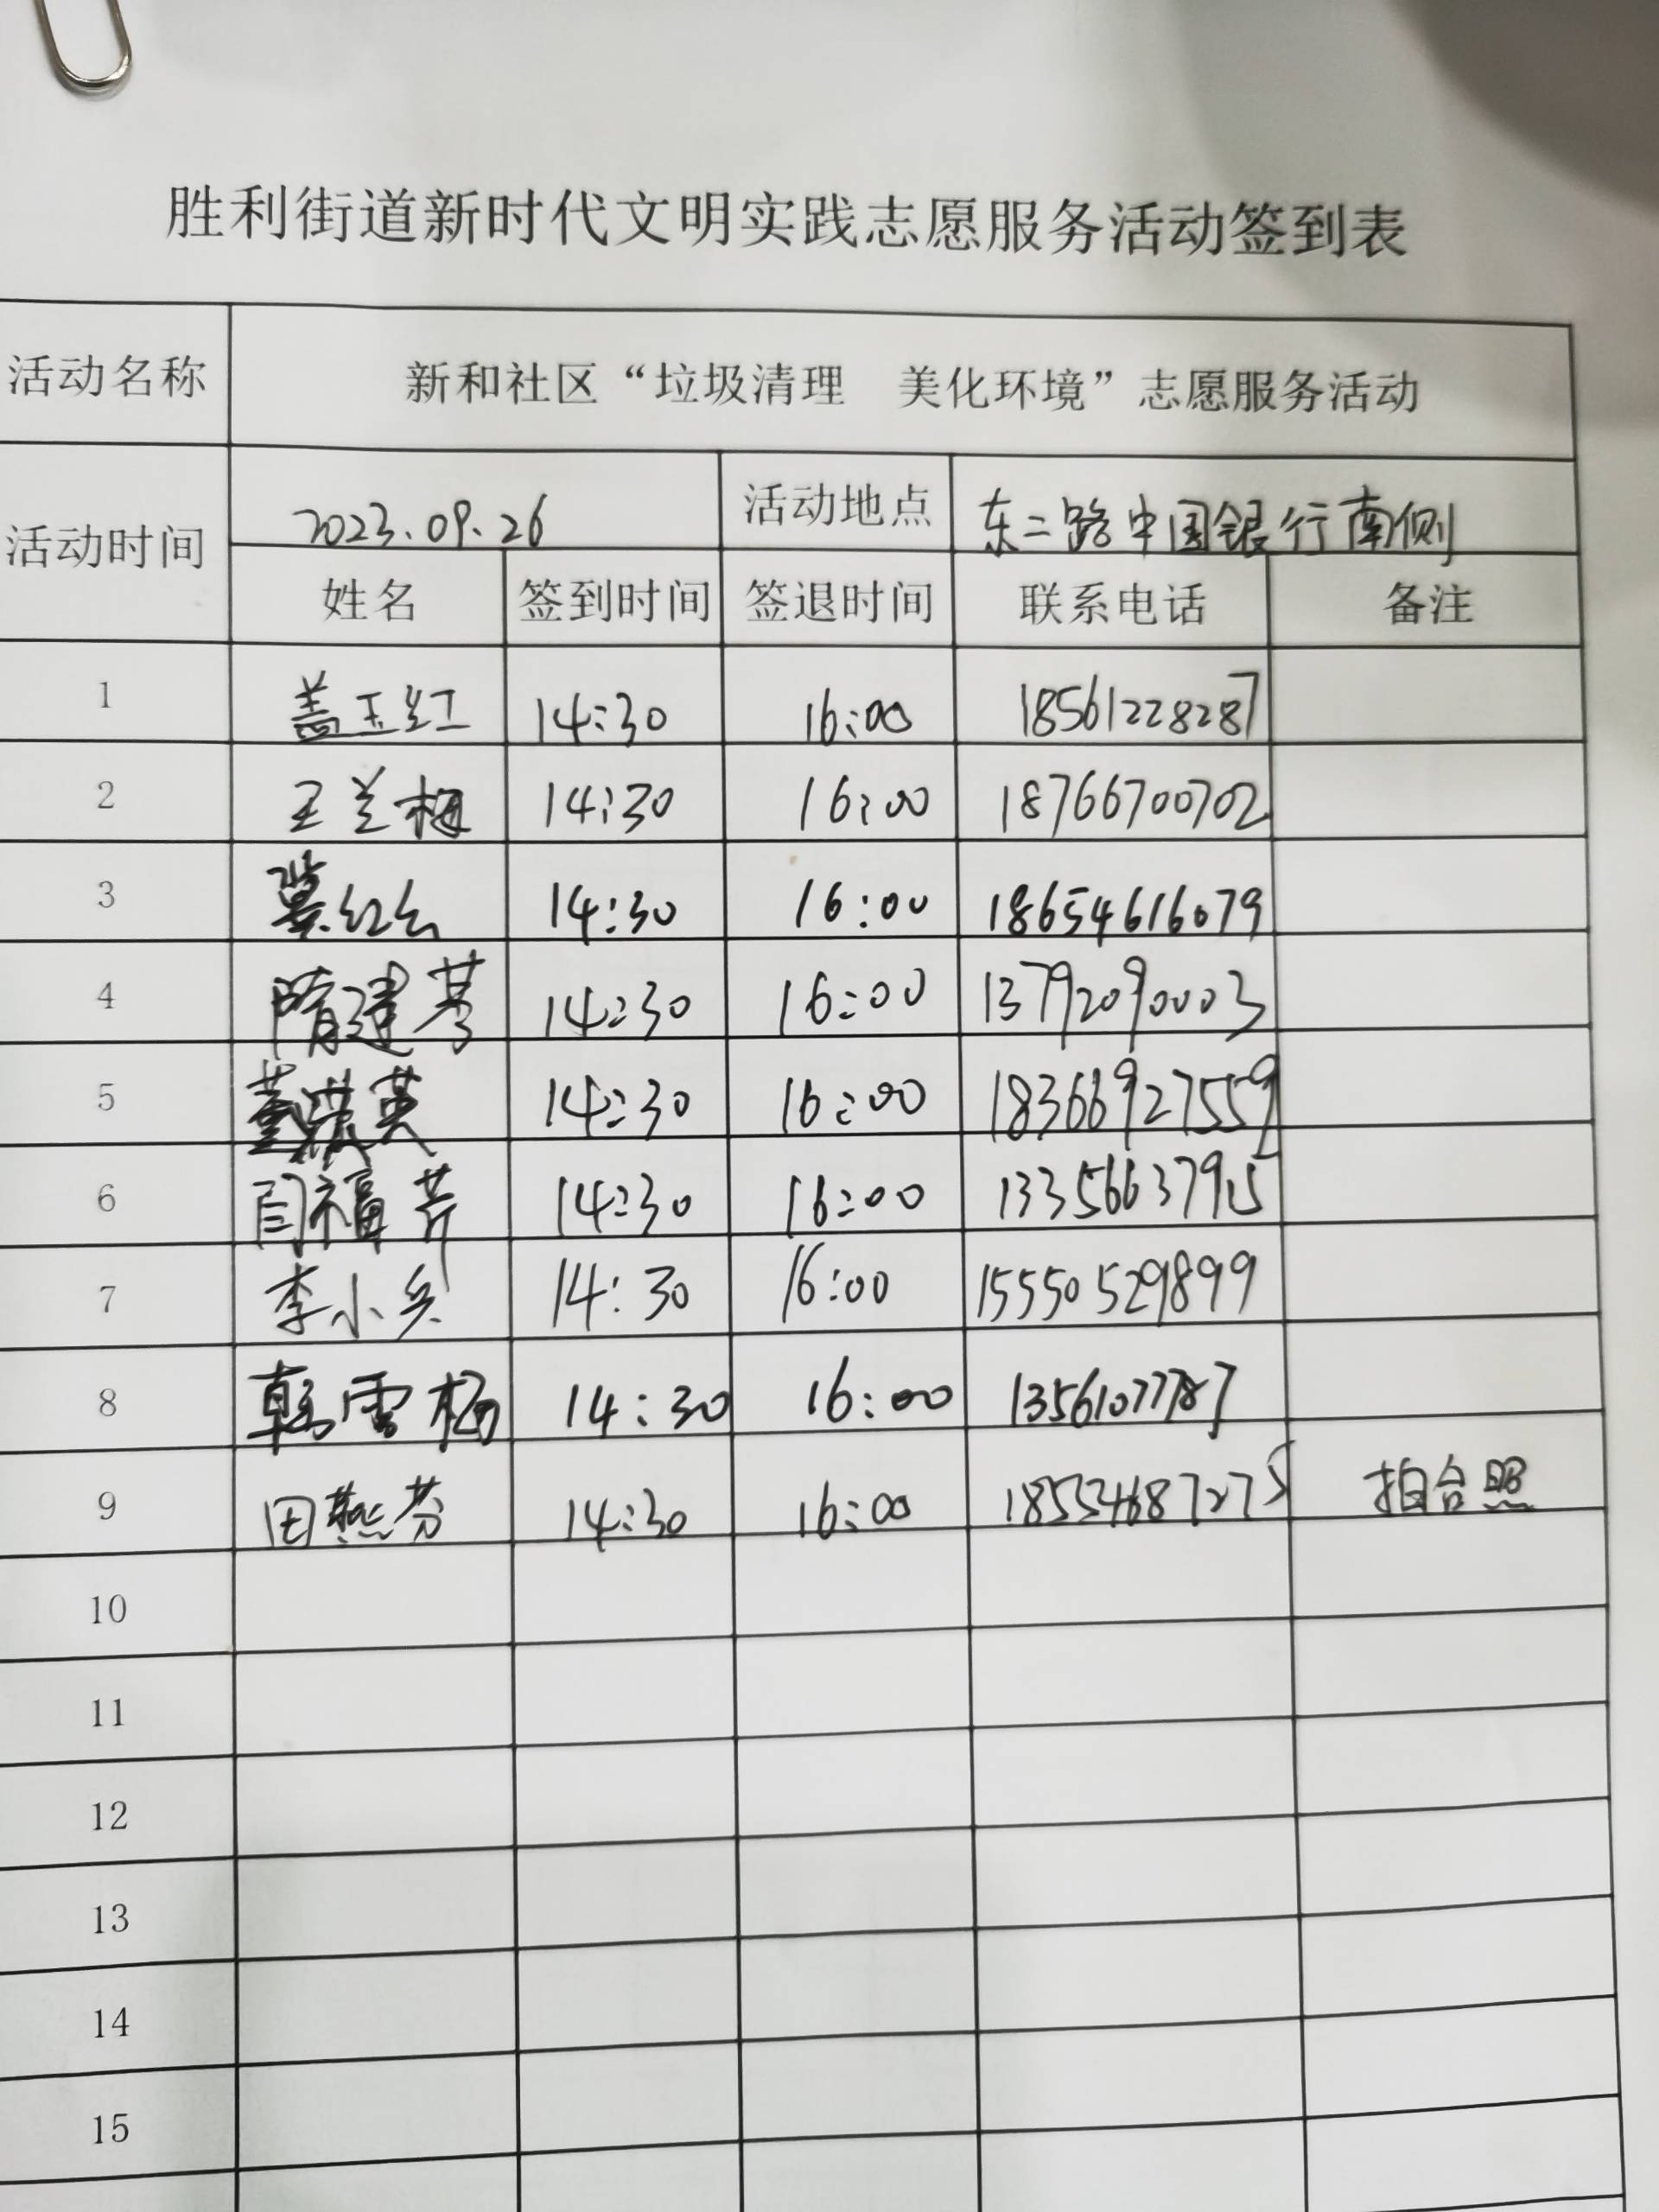 胜利街道新时代文明实践志愿服务活动签到表
活动名称 新和社区“垃圾清理 美化环境”志愿服务活动
活动时间 2023.09.26 活动地点 东二路中国银行南侧
姓名 签到时间 签退时间 联系电话 备注
1 盖玉红 14:30 16:00 18561228287
2 王兰梅 14:30 16:00 18766700702
3 冀红云 14:30 16:00 18654616079
4 隋建芳 14:30 16:00 13792090003
5 董洪英 14:30 16:00 18366927559
6 闫福芹 14:30 16:00 13356637915
7 李小兵 14:30 16:00 15550529899
8 韩雪梅 14:30 16:00 13561077787
9 田燕芬 14:30 16:00 18554687275 拍合照
10
11
12
13
14
15